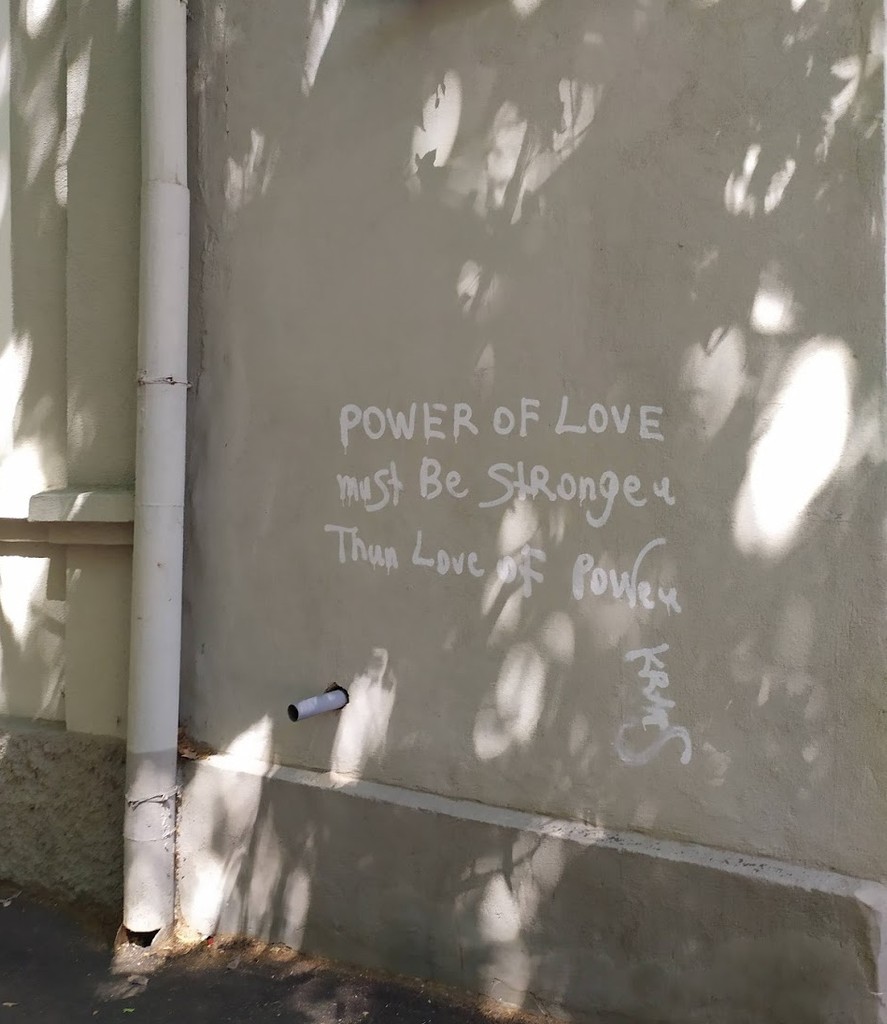 POWER OF LOVE
must Be StRongeu
Than Love of Poweu